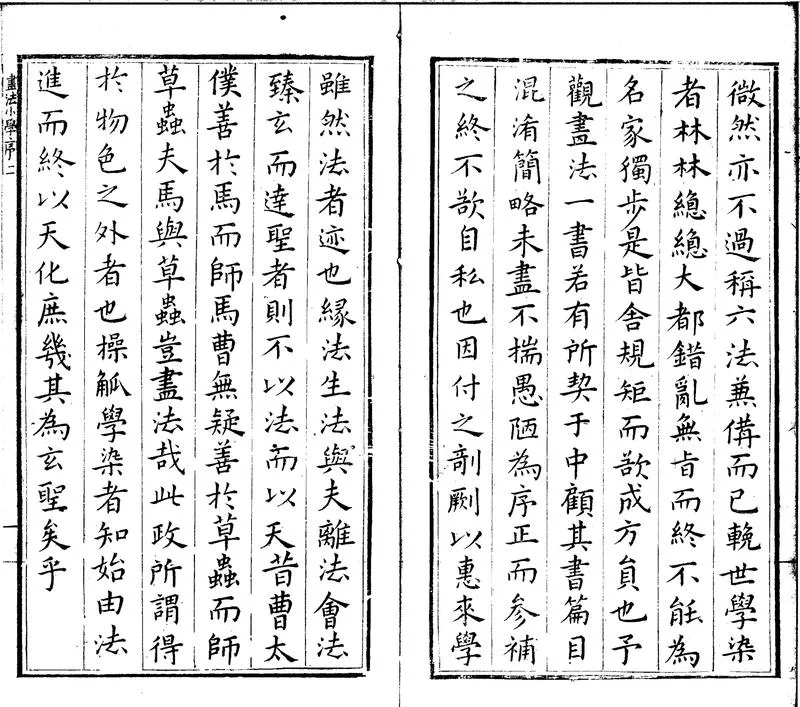 微然亦不過稱六法兼備而已輓世學染
者林林總總大都錯亂無旨而終不能為
名家獨步是皆舍規矩而欲成方員也予
觀畫法一書若有所契于中顧其書篇目
混淆簡略未盡不揣愚陋為序正而參補
之終不欲自私也因付之剞劂以惠來學
雖然法者迹也緣法生法與夫離法會法
臻玄而達聖者則不以法而以天昔曹太
僕善於馬而師馬曹無疑善於草蟲而師
草蟲夫馬與草蟲豈畫法哉此政所謂得
於物色之外者也操觚學染者知始由法
進而終以天化庶幾其為玄聖矣乎
畫法小學序二